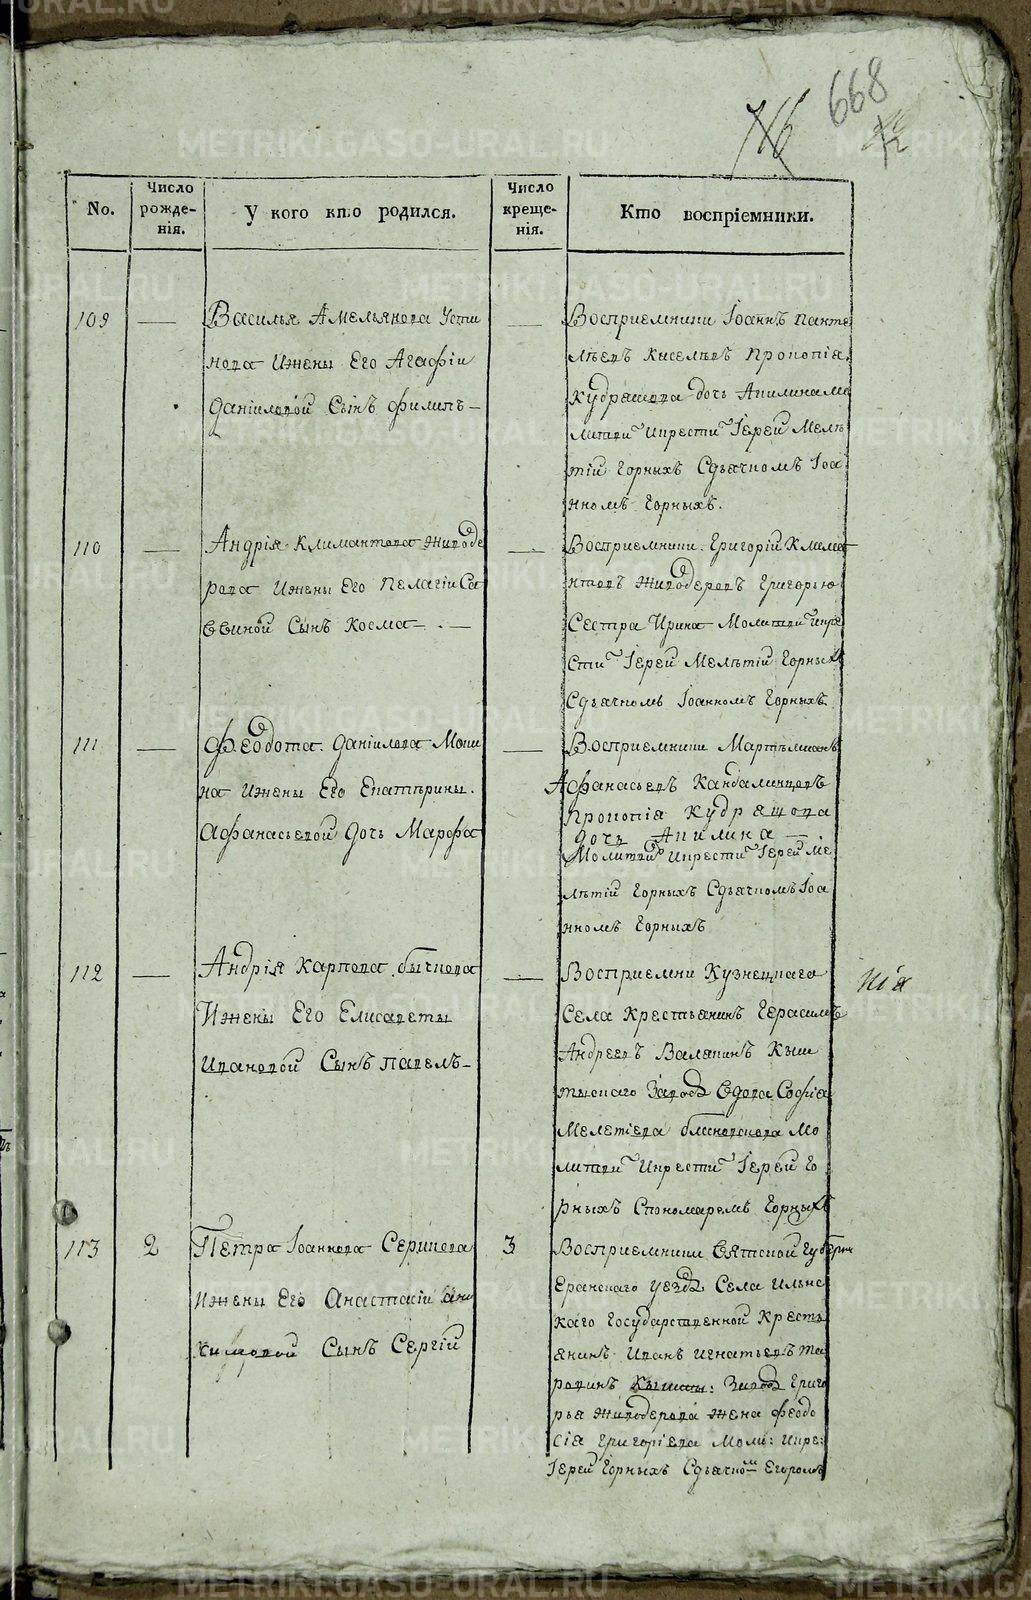 668
716
No.
Число рожде-нія.
У кого кто родился.
Число креще-нія.
Кто воспріемники.
109
Василья Амельянова Усти
нова Ижены Его Агафіи
Даніиловой Сынъ Филипъ
Восприемники Іоаннъ Панте
лѣевъ Киселѣвъ Прокопія
Кудрешова дочь Акилина мо
литви Икрести Іерей Мелѣ
тій Горныхъ Сдьячкомъ Іоа
нномъ Горныхъ.
110
Андрія Климантова Живоде
рова Ижены Его Пелагіи Са
ввиной Сынъ Косма
Восприемники Григорій Климе
нтовъ Живодеровъ Григорью
Сестра Ирина Молитви Икре
сти Іерей Мелѣтій Горныхъ
Сдьячкомъ Іоанномъ Горныхъ
111
Федота Даніилова Моки
на Ижены Его Екатѣрины
Афанасьевой Дочь Марфа
Восприемники Мартемианъ
Афанасьевъ Кандалинцовъ
Прокопія Кудрешова
дочь Акилина
Молитви Икрести Іерей Ме
лѣтій Горныхъ Сдьячкомъ Іоа
нномъ Горныхъ
112
Андрія Карпова Бычкова
Ижены Его Елисаветы
Ивановой Сынъ Павелъ
Восприемни Кузнецкага
кія
Села Крестьанинъ Герасимъ
Андреевъ Валякинъ Кыш
тымскаго Завод Вдова Софія
Мелетіева Блиновскова Мо
литви Икрести Іерей Го
рныхъ Спономаремъ Горныхъ
113
2
Петра Іоаннова Серикова
Ижены Его Анастасіи Аки
химовой Сынъ Сергій
3
Восприемники Вятской Губерни
Еранскаго уезда Села Ильнс
каго Государственной Кресть
янинъ Иванъ Игнатьевъ Та
ровинъ Кышты: Завод Григо
рья Живодерова Жена Феодо
сія Григоріева Моли: Икре:
Іерей Горныхъ Сдьячком Егоромъ